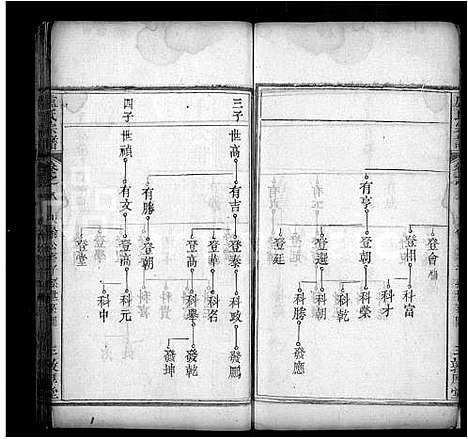 有亨
登會
登相
登朝
登選
登廷
科富
科才
科榮
科乾
科勝
發應
三子
世高
有吉
登泰
登華
登高
科政
科名
科舉
發鵬
發乾
發坤
四子
世禎
有勝
登朝
有文
登高
登堂
科元
科中